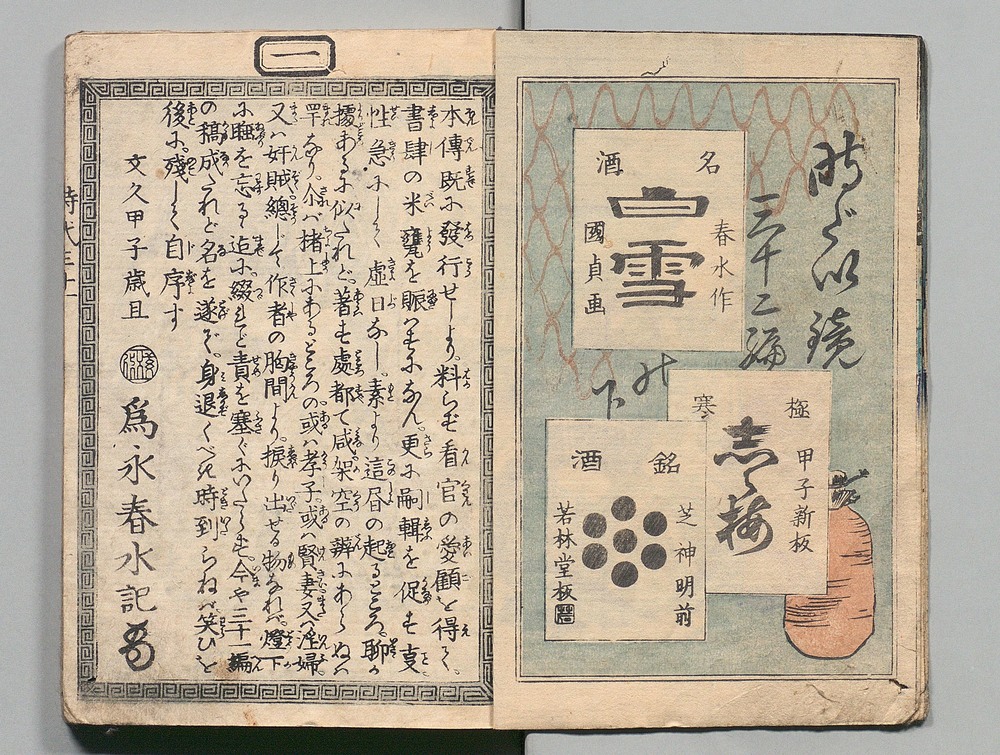 時代鏡
三十二編
の
下
名
酒
白雪
春水作
國貞画
極
寒
志ら梅
甲子新板
銘
酒
芝神明前
若林堂板
一
本傳既に發行せしより。料らずも看官の愛顧を得て。
書肆の米甕を賑はすになん。更に嗣輯を促も支
性急にして虚日なし。素より這昼の起るところ。聊か
據あるに似たれど。著も處都て咸架空の辨にあらぬは
罕なり。尒ば楮上にあるところの或は孝子。或は賢妻又は淫婦
又は奸賊總して作者の胸間より。捩り出せる物なれば。燈下
に睡を忘るゝ迠に。綴れど責を塞ぐにいたらず。今や三十一編
の稿成たれど名を遂ず。身退くべき時到らねば。笑ひを
後に。殘して自序す
文久甲子歳旦
爲永春水記
時代三十一